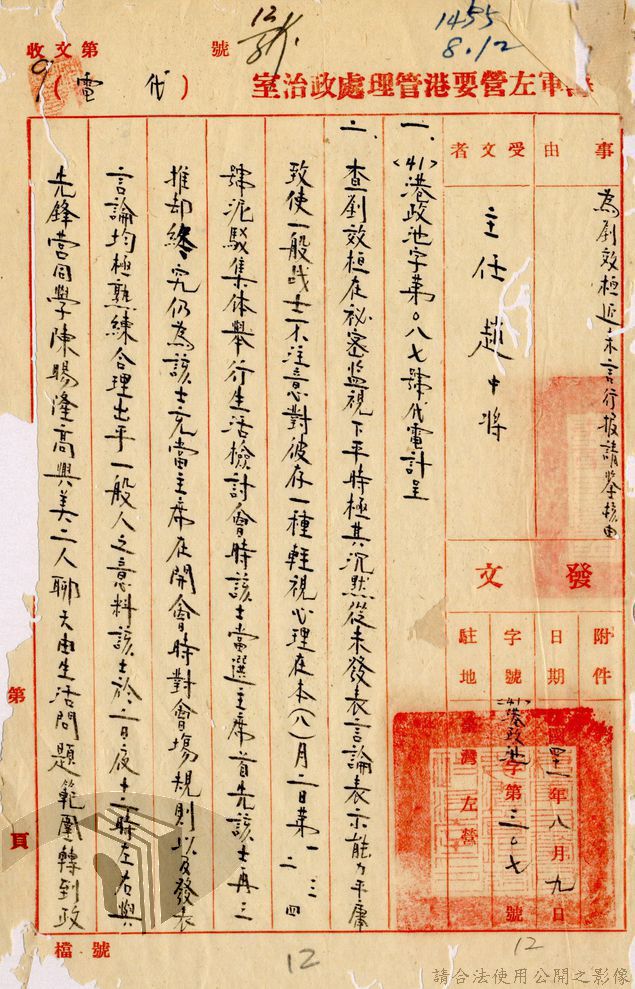 1455
8.12
12
收文第 號
海軍左營要港管理處政治室(代電)
事由
為劉效桓近來言行報請鑒核由
受文者
主任趙中將
發文
附件
日期
四十一年八月九日
字號
(41)港政池字第三〇七號
駐地
臺灣左營
一、(41)港政池字第〇八七號代電計呈
二、查劉效桓在祕密監視下平時極其沉默從未發表言論表示能力平庸
致使一般战士不注意對彼存一種輕視心理在本(八)月二日第一二三四
號泥駁集体舉行生活檢討會時該士當選主席首先該士再三
推却終究仍為該士充當主席在開會時對會場規則以及發表
言論均極熟練合理出乎一般人之意料該士於二日夜十二時左右與
先鋒營同學陳賜隆高興美二人聊天由生活問題範圍轉到政
第 頁
檔號
12
12
請合法使用公開之影像